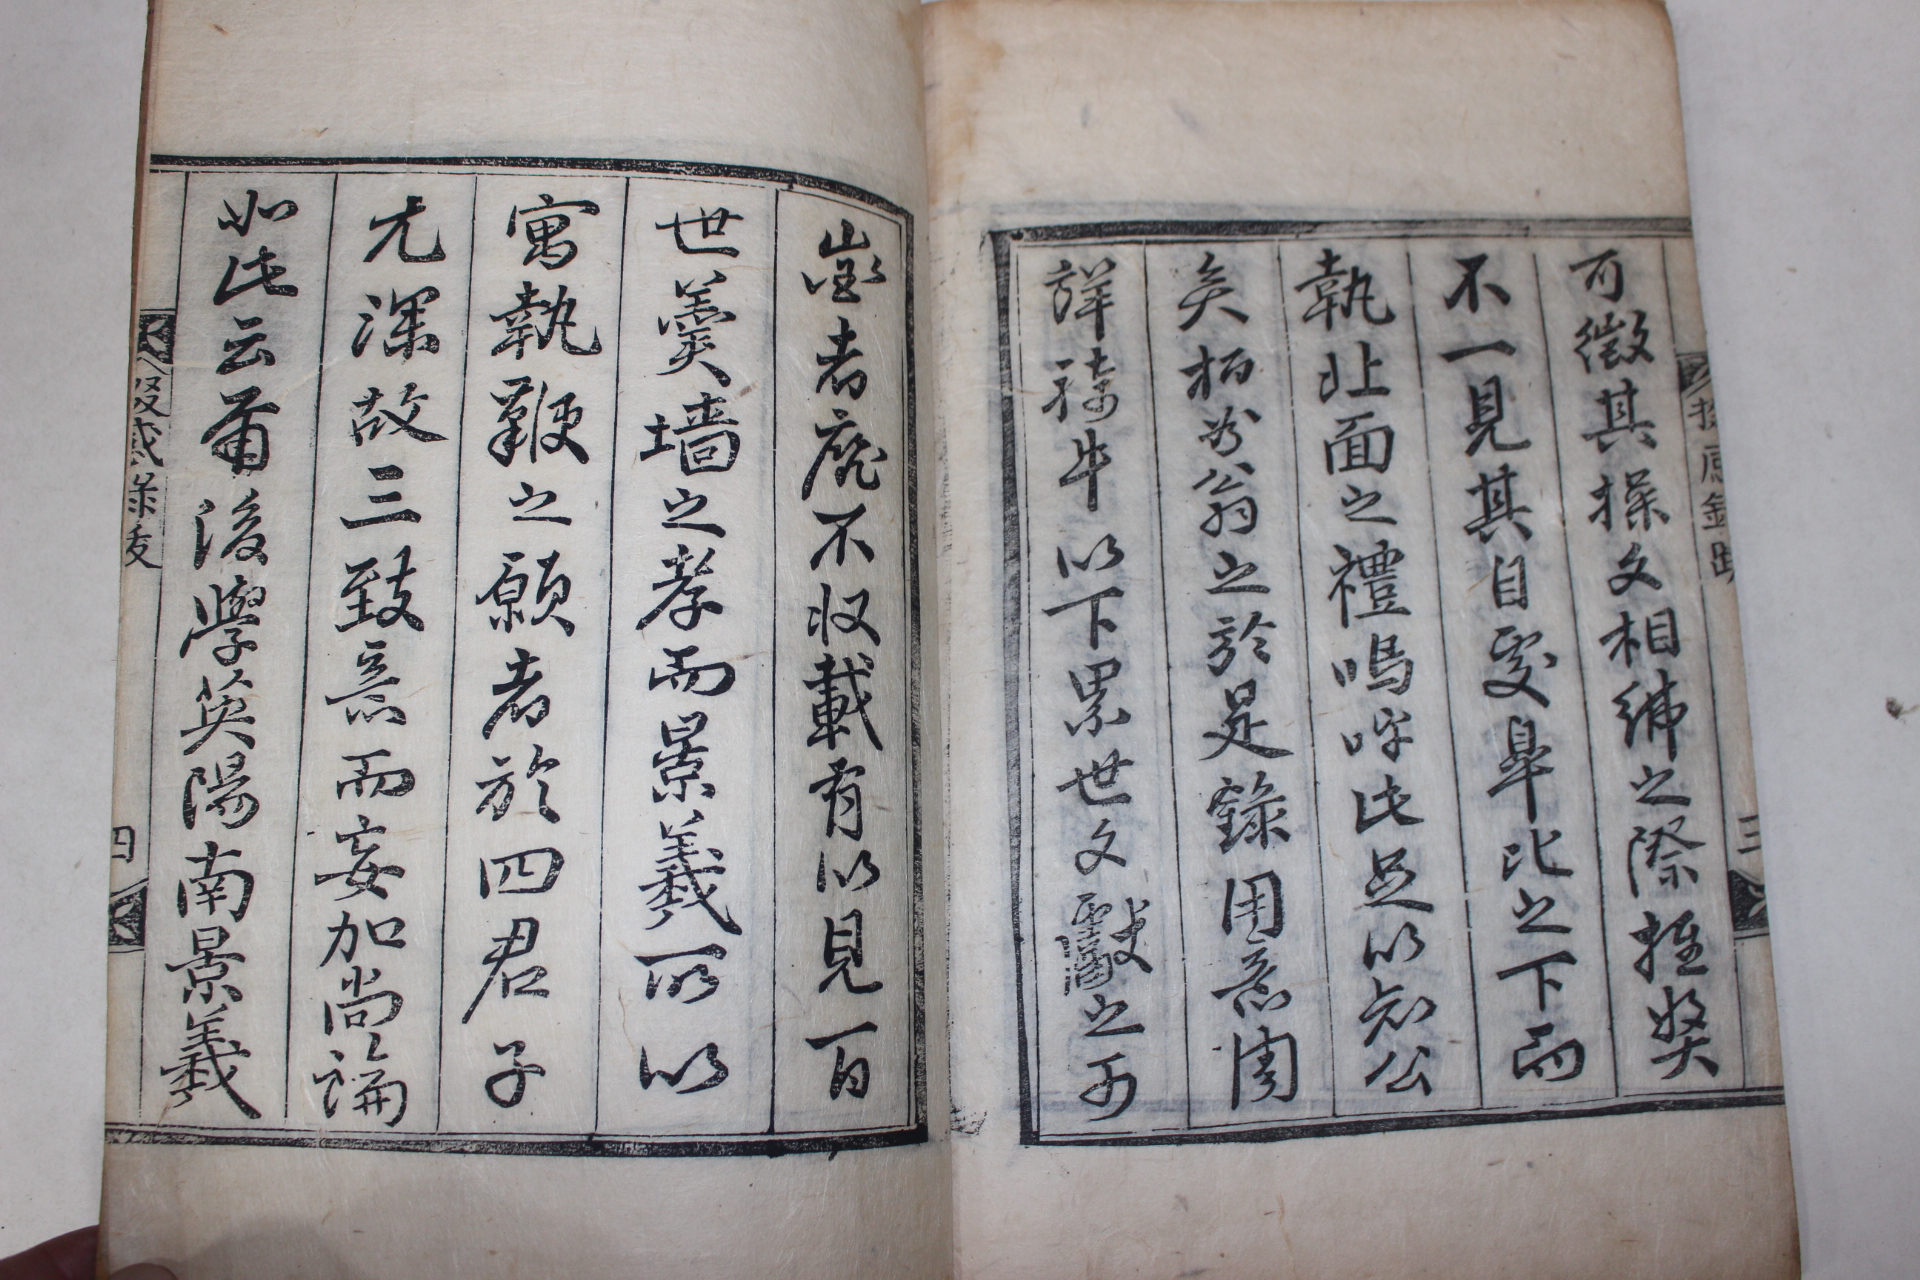 可徵其操文相佛之際推奬
不一見其自處卑比之下而
執北面之禮嗚呼此足以知公
矣栢翁之於是錄用意周
詳騎牛以下累世文獻之可
徵者靡不収載有以見百
世羹墻之孝而景羲所以
寓執鞭之願者於四君子
尤深故三致意而妄加尚論
如此云爾後學英陽南景羲
感錄跋
三
四